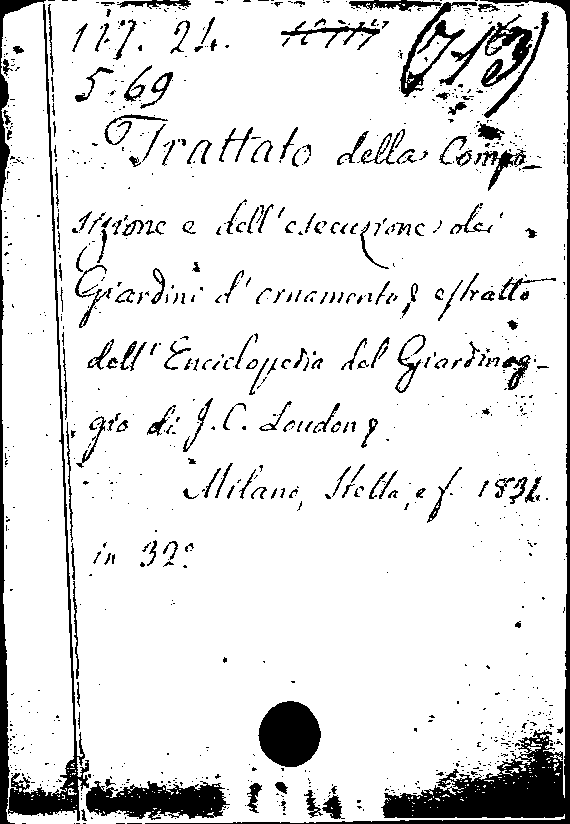 127. 24.
5.69
Trattato della Compo-
sizione e dell'esecuzione dei
Giardini d'ornamento, estratto
dell'Enciclopedia del Giardinag-
gio di J.C. Loudon,
Milano, Stella, e f.
in 32º